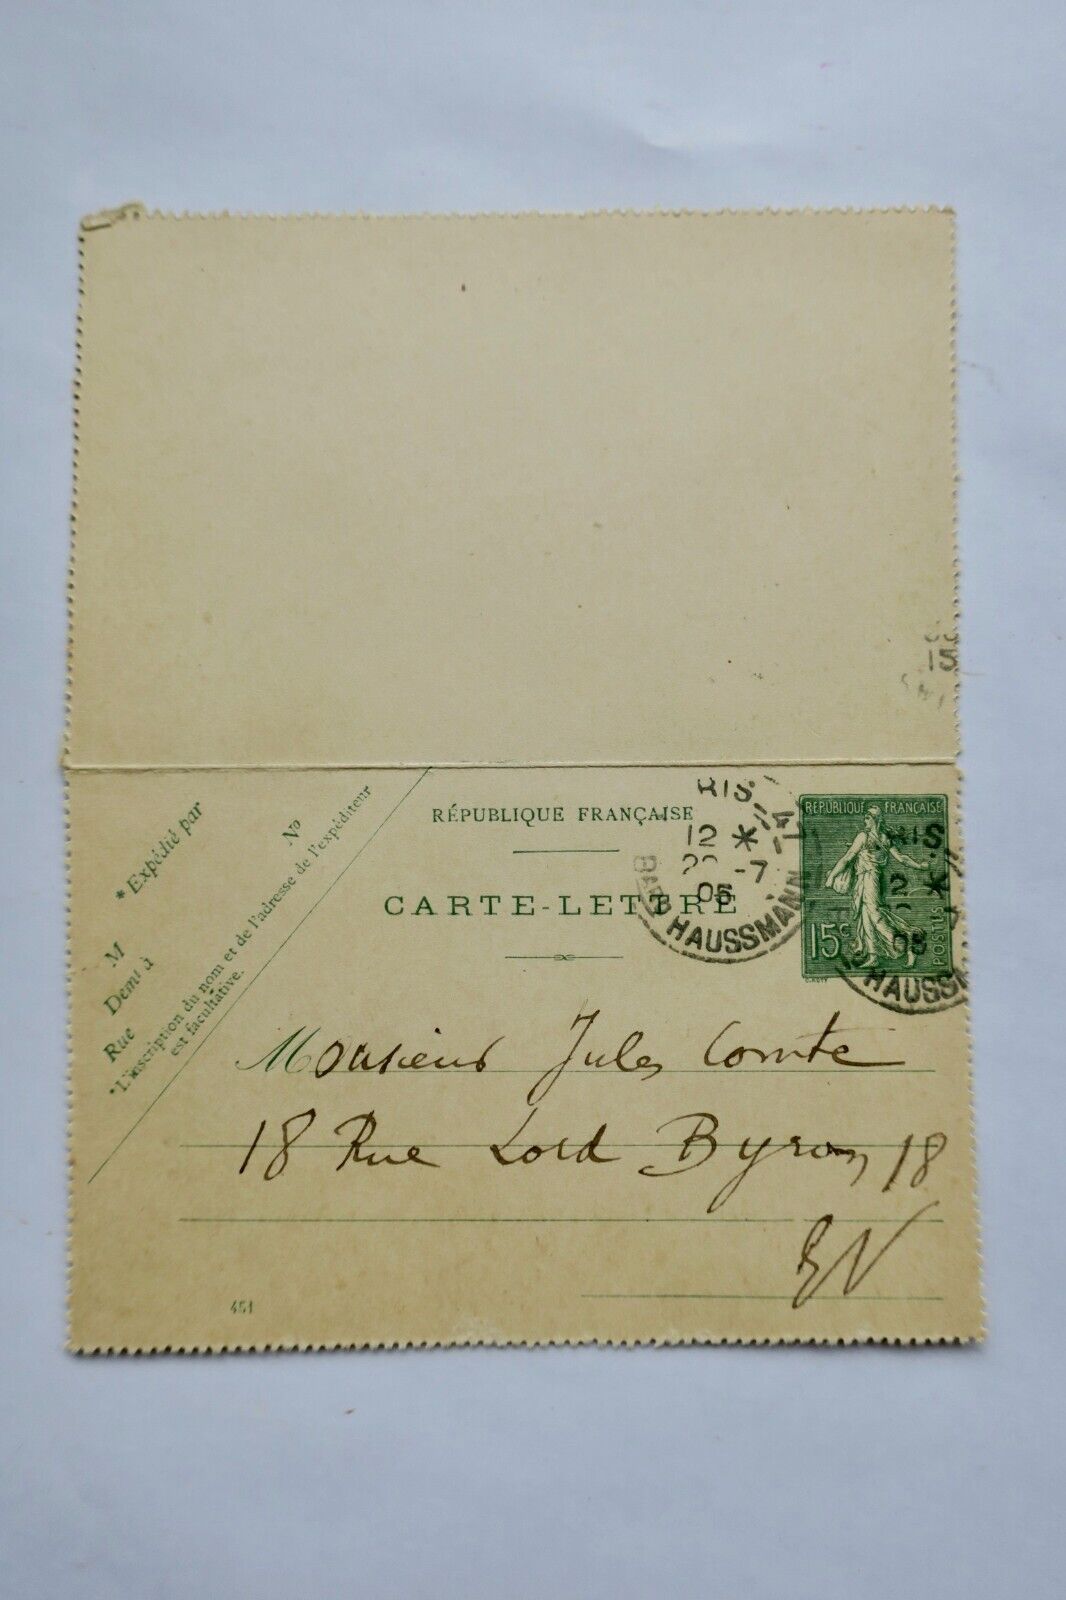 * Expédié par
M
Demt à
Rue
No
*L'inscription du nom et de l'adresse de l'expéditeur
est facultative.
RÉPUBLIQUE FRANÇAISE
CARTE-LETTRE
RIS
12 *
-7
05
BARD HAUSSMANN
RÉPUBLIQUE FRANÇAISE
15c
POSTES
RIS
12 *
05
HAUSSM
15
Monsieur Jules Comte
18 Rue Lord Byron 18
EV
451